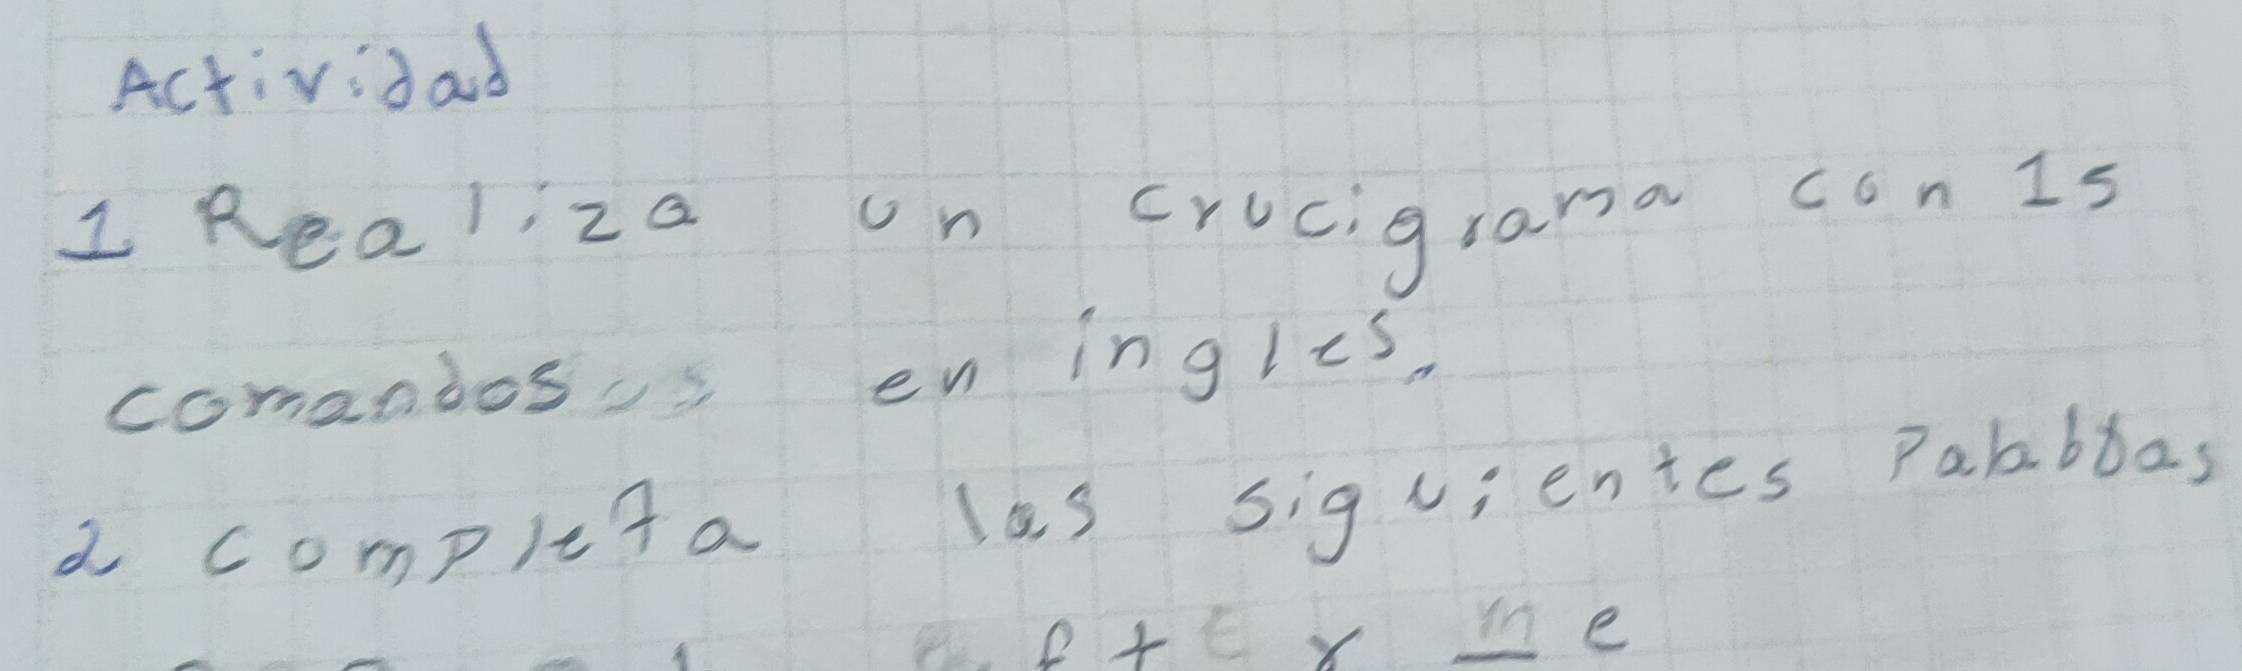 Actividad
1 Realiza un crucigrama con 15
comandos en ingles.
2 completa las siguientes Palabras
after me